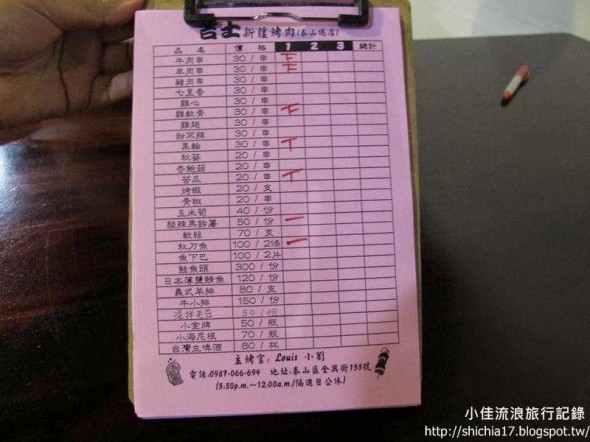 吉士 新疆烤肉(泰山總店)
品名 價格 1 2 3 總計
牛肉串 30 / 串
羊肉串 30 / 串
豬肉串 30 / 串
七里香 30 / 串
雞心 30 / 串
雞軟骨 30 / 串
雞翅 30 / 串
粉不辣 30 / 串
黑輪 30 / 串
秋葵 20 / 串
杏鮑菇 20 / 串
苦瓜 20 / 串
烤蝦 20 / 支
青椒 20 / 串
玉米筍 40 / 份
酸辣馬鈴薯 50 / 份
軟絲 70 / 支
秋刀魚 100 / 2條
魚下巴 100 / 2片
鮭魚頭 300 / 份
日本薄鹽鯖魚 120 / 份
義式羊排 80 / 支
牛小排 150 / 份
涼拌毛豆 50 / 份
小金牌 50 / 瓶
小海尼根 70 / 瓶
台灣生啤酒 80 / 杯
主烤官: Louis 小劉
電話:0987-066-694 地址:泰山區全興街155號
(5:30p.m.~12:00a.m./隔週日公休)
小佳流浪旅行記錄
http://shichia17.blogspot.tw/